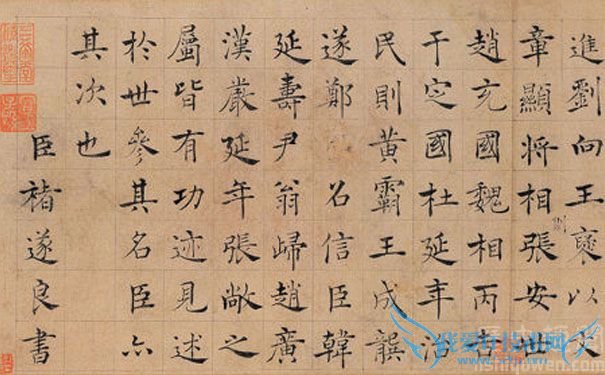 進劉向王褒以文
章顯將相張安世
趙充國魏相丙吉
于定國杜延年治
民則黃霸王成龔
遂鄭召信臣韓
延壽尹翁歸趙廣
漢嚴延年張敞之
屬皆有功迹見述
於世參其名臣亦
其次也
臣褚遂良書